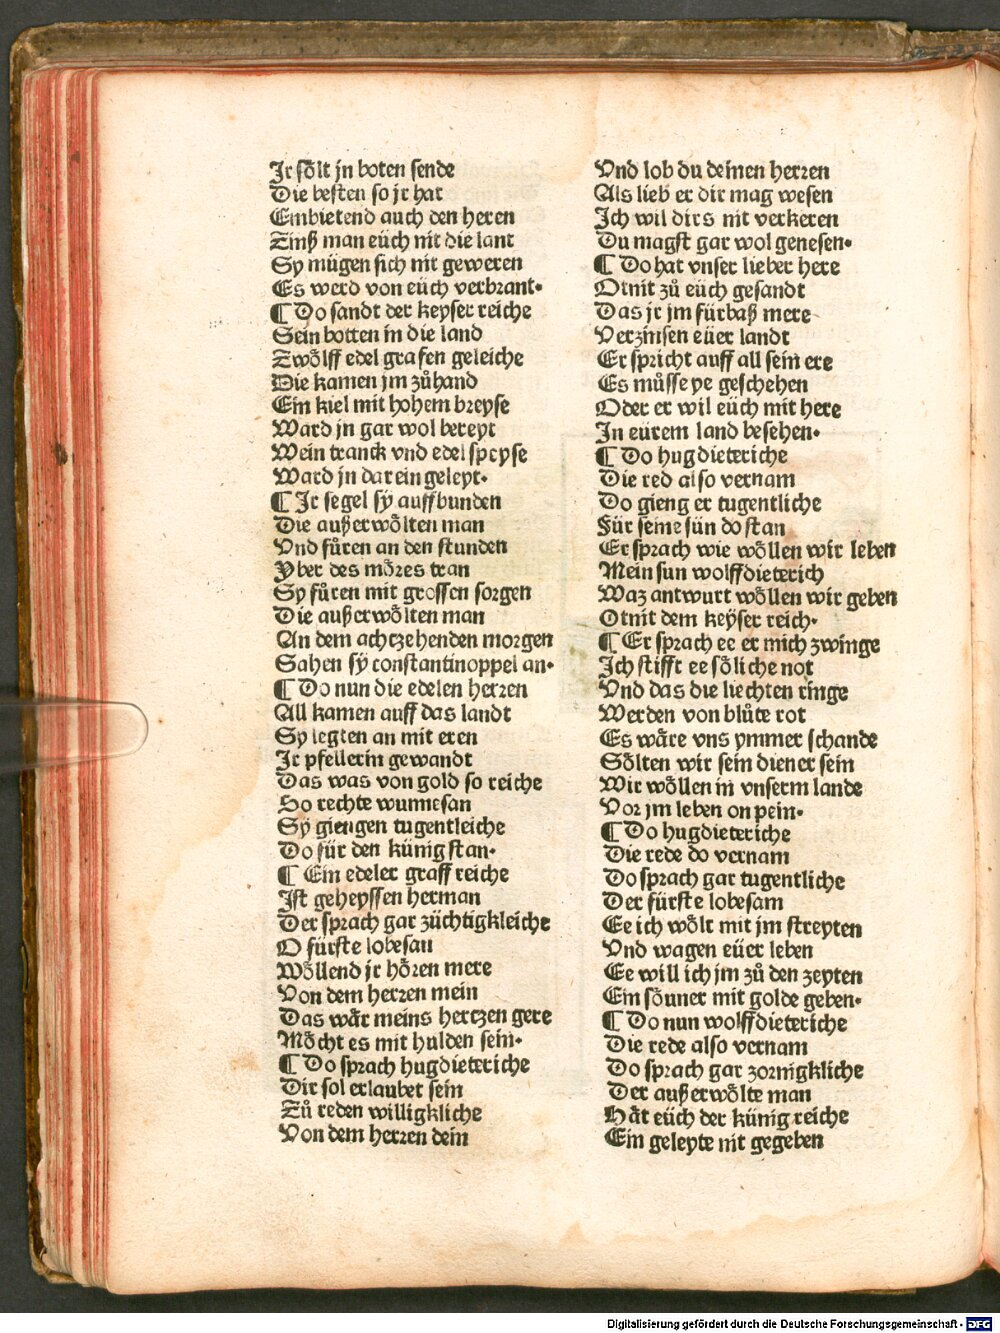 Jr sõlt jn boten sende
Die besten so jr hat
Embietend auch den heren
Zinß man eüch nit die lant
Sy mügen sich nit geweren
Es werd von eüch verbrant·
¶ Do sandt der keyser reiche
Sein botten in die land
Zwoͤlff edel grafen geleiche
Die kamen jm zů hand
Ein kiel mit hohem breyse
Ward jn gar wol bereyt
Wein tranck vnd edel speyse
Ward jn dar ein geleyt·
¶ Jr segel sÿ auff bunden
Die außerwoͤlten man
Vnd fůren an den stunden
Yber des moͤres tran
Sy fůren mit grossen sorgen
Die außerwoͤlten man
An dem achtzehenden morgen
Sahen sÿ constantinoppel an·
¶ Do nun die edelen herren
All kamen auff das landt
Sy legten an mit eren
Jr pfellerin gewandt
Das was von gold so reiche
So rechte wunnesan
Sy giengen tugentleiche
Do für den künig stan·
¶ Ein edeler graff reiche
Jst geheyssen herman
Der sprach gar züchtigkleiche
O fürste lobesan
Woͤllend jr hoͤren mere
Von dem herren mein
Das waͤr meins hertzen gere
Moͤcht es mit hulden sein·
¶ Do sprach hugdieteriche
Dir sol erlaubet sein
Zů reden willigkliche
Von dem herren dein
Vnd lob du deinen herren
Als lieb er dir mag wesen
Jch wil dirs nit verkeren
Du magst gar wol genesen·
¶ Do hat vnser lieber here
Otnit zů eüch gesandt
Das jr jm fürbaß mere
Verzinsen eüer landt
Er spricht auff all sein ere
Es můsse ye geschehen
Oder er wil eüch mit here
Jn eürem land besehen·
¶ Do hug dieteriche
Die red also vernam
Do gieng er tugentliche
Für seine sün do stan
Er sprach wie woͤllen wir leben
Mein sun wolffdieterich
Waz antwurt woͤllen wir geben
Otnit dem keÿser reich·
¶ Er sprach ee er mich zwinge
Jch stifft ee soͤliche not
Vnd das die liechten ringe
Werden von blůte rot
Es waͤre vns ymmer schande
Soͤlten wir sein diener sein
Wir woͤllen in vnserm lande
Vor jm leben on pein·
¶ Do hugdieteriche
Die rede do vernam
Do sprach gar tugentliche
Der fürste lobesam
Ee ich woͤlt mit jm streyten
Vnd wagen eüer leben
Ee will ich jm zů den zeyten
Ein soͤumer mit golde geben·
¶ Do nun wolffdieteriche
Die rede also vernam
Do sprach gar zornigkliche
Der außerwoͤlte man
Haͤt eüch der künig reiche
Ein geleyte nit gegeben
Digitalisierung gefördert durch die Deutsche Forschungsgemeinschaft - DFG